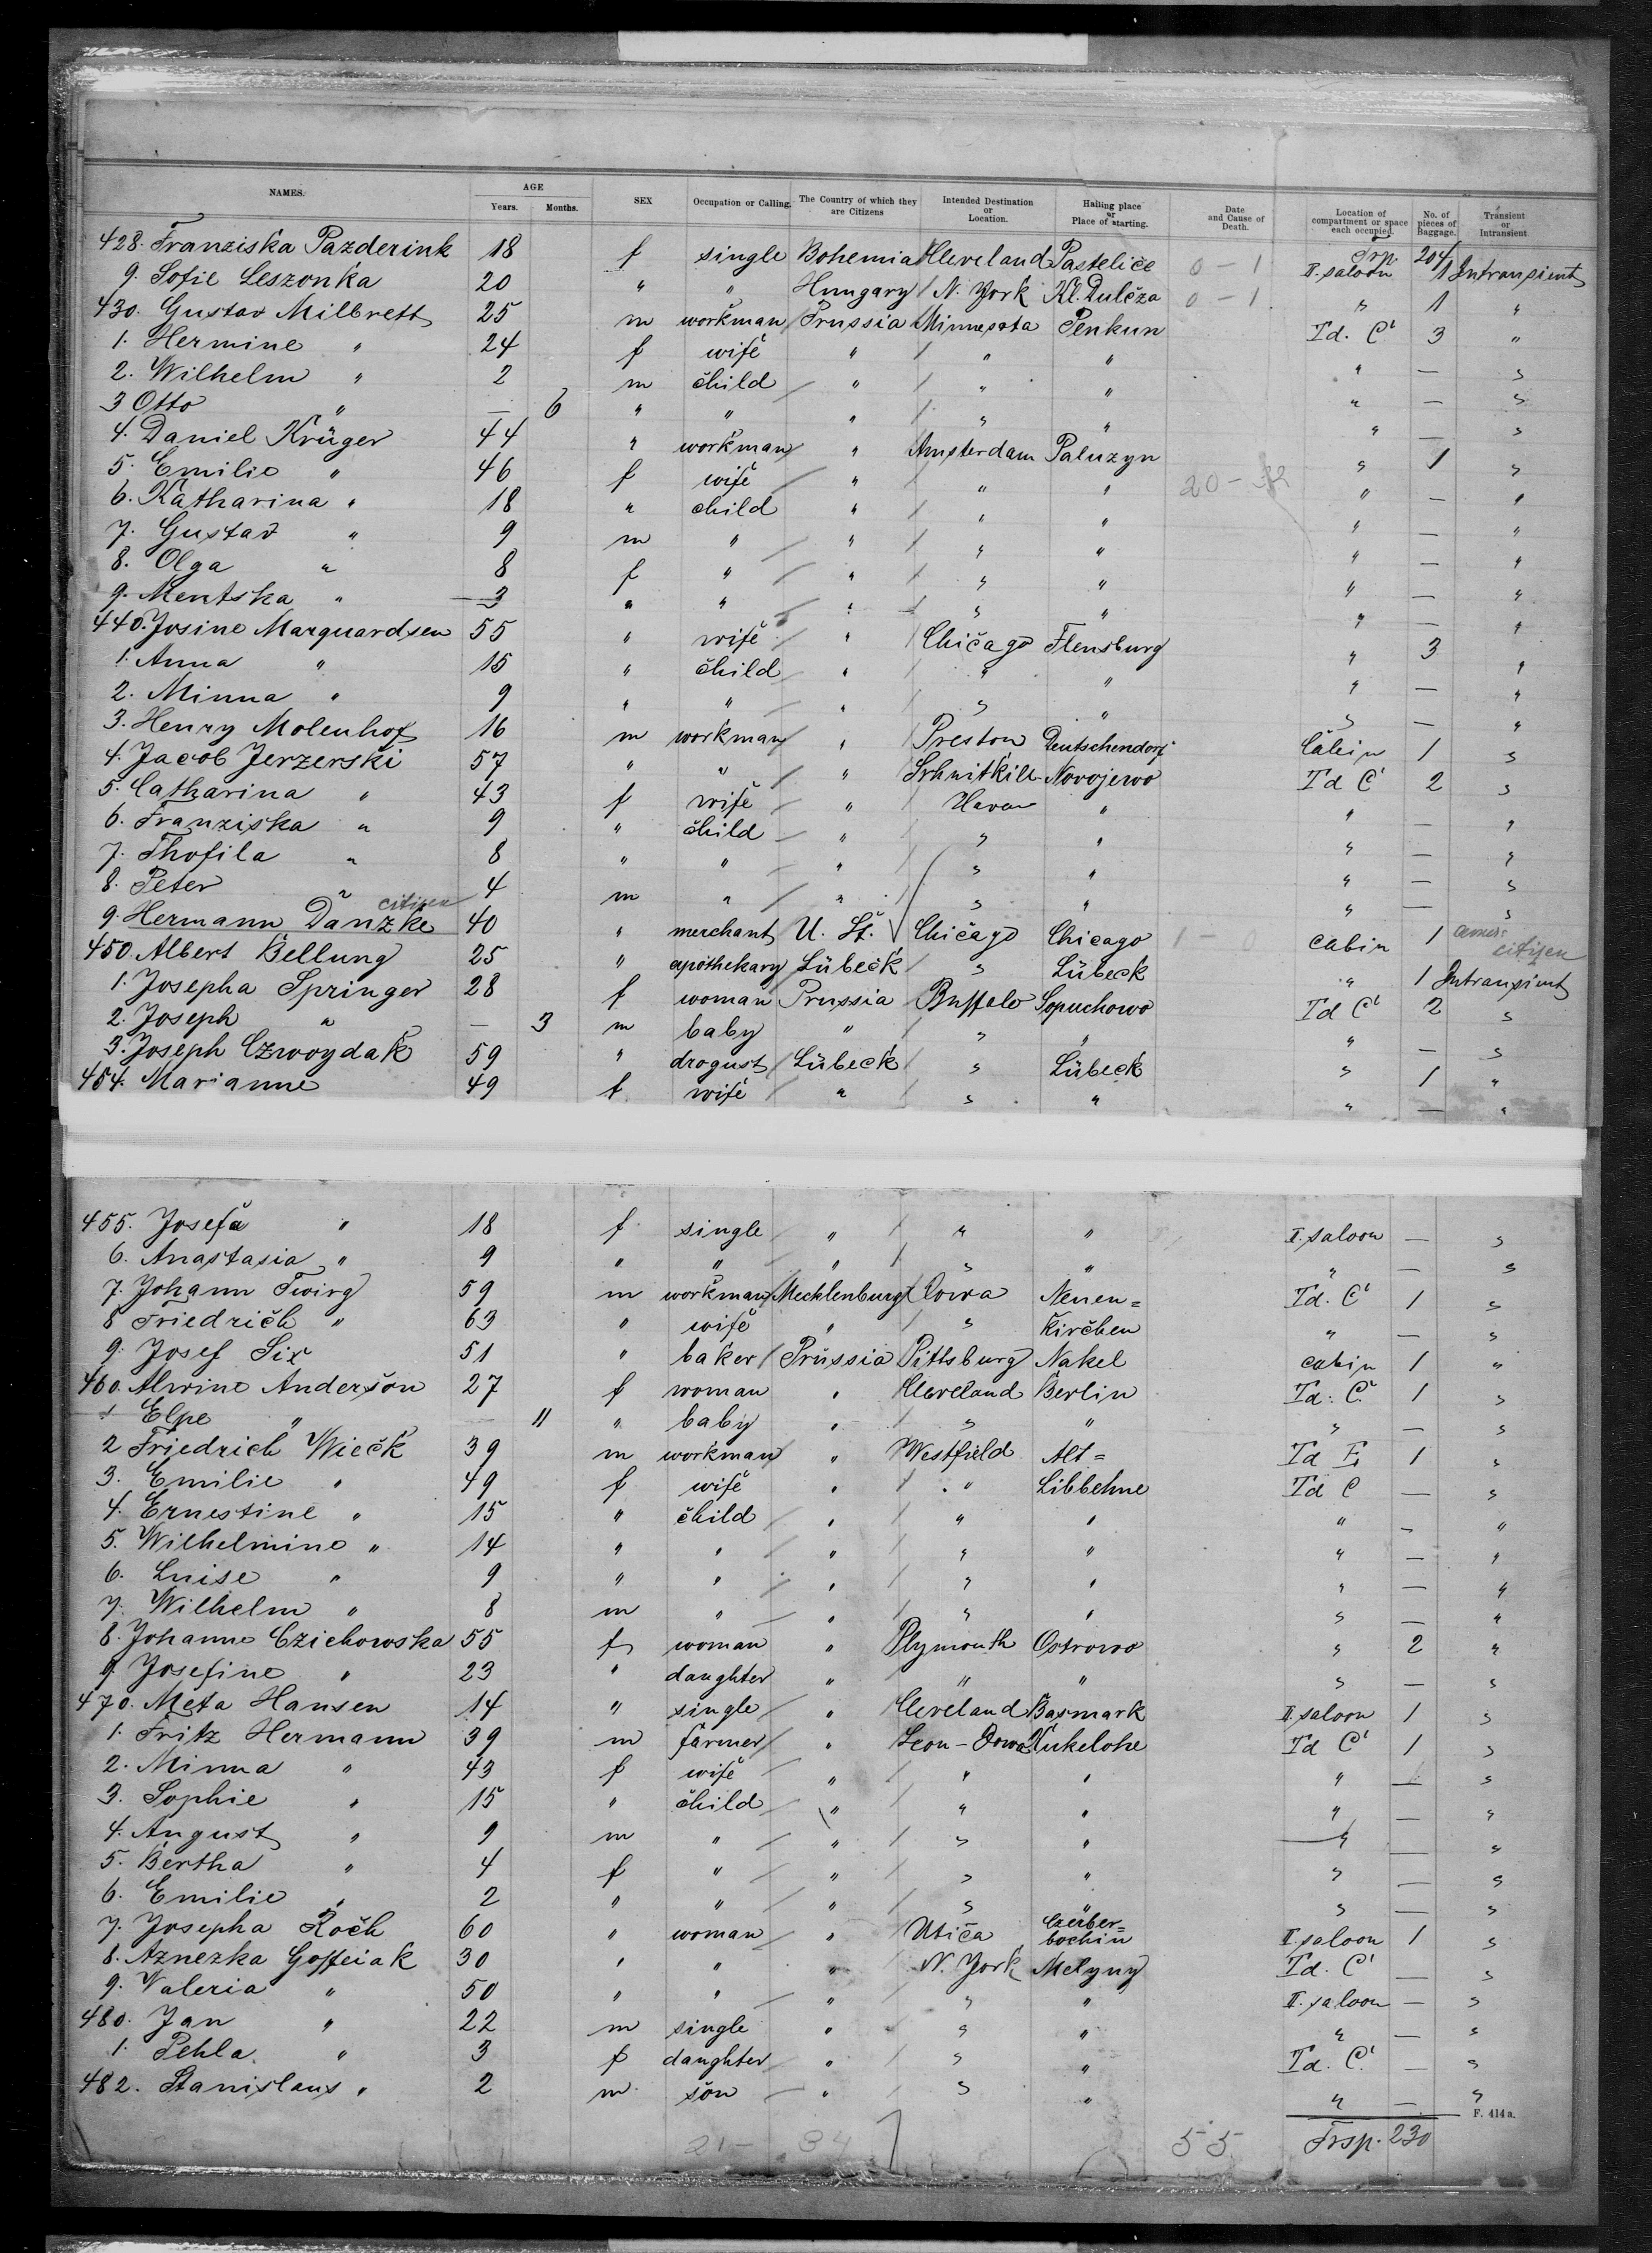 NAMES. AGE SEX Occupation or Calling. The Country of which they are Citizens Intended Destination or Location. Hailing place or Place of starting. Date and Cause of Death. Location of compartment or space each occupied. No. of pieces of Baggage. Transient or Intransient
Years. Months.
Trsp. 204
428. Franziska Pazderink 18 f single Bohemia Cleveland Pastelice 0 - 1 II. saloon 1 Intransient
9. Sofie Leszonka 20 " " Hungary N. York Kl. Dulcza 0 - 1 " 1 "
430. Gustav Milbrett 25 m workman Prussia Minnesota Penkun Td. C' 3 "
1. Hermine " 24 f wife " " " " — "
2. Wilhelm " 2 m child " " " " — "
3 Otto " — 6 " " " " " " — "
4. Daniel Krüger 44 " workman " Amsterdam Paluzyn " 1 "
5. Emilie " 46 f wife " " " 20 - " — "
6. Katharina " 18 " child " " " " — "
7. Gustav " 9 m " " " " " — "
8. Olga " 8 f " " " " " — "
9. Mentska " 3 " " " " " " — "
440. Josine Marquardsen 55 " wife " Chicago Flensburg " 3 "
1. Anna " 15 " child " " " " — "
2. Minna " 9 " " " " " " — "
3. Henry Molenhof 16 m workman " Preston Deutschendorf Cabin 1 "
4. Jacob Jerzerski 57 " " " Schuitkill Novojewo Td C' 2 "
5. Catharina " 43 f wife " Haven " " — "
6. Franziska " 9 " child " " " " — "
7. Thofila " 8 " " " " " " — "
8. Peter " 4 m " " " " " — "
citizen
9. Hermann Danzke 40 " merchant U. St. Chicago Chicago 1 - 0 cabin 1 amer. citizen
450. Albert Bellung 25 " apothekary Lübeck " Lübeck " 1 Intransient
1. Josepha Springer 28 f woman Prussia Buffelo Sopuchowo Td C' 2 "
2. Joseph " — 3 m baby " " " " — "
3. Joseph Czwoydak 59 " drogust Lübeck " Lübeck " 1 "
454. Marianne 49 f. wife " " " " — "
455. Josefa " 18 f single " " " II. saloon — "
6. Anastasia " 9 " " " " " " — "
7. Johann Twirg 59 m workman Mecklenburg Iowa Neuen= Td. C' 1 "
8 Friedrich " 63 " wife " " kirchen " — "
9. Josef Six 51 " baker Prussia Pittsburg Nakel cabin 1 "
460. Alwine Anderson 27 f woman " Cleveland Berlin Td. C' 1 "
1 Elpe " — 11 " baby " " " " — "
2 Friedrich Wieck 39 m workman " Westfield Alt= Td F, 1 "
3. Emilie " 49 f wife " " Libbehne Td C — "
4. Ernestine " 15 " child " " " " — "
5. Wilhelmine " 14 " " " " " " — "
6. Luise " 9 " " " " " " — "
7. Wilhelm " 8 m " " " " " — "
8. Johanne Czichowska 55 f woman " Plymouth Ostrowo " 2 "
9. Josefine " 23 " daughter " " " " — "
470. Meta Hansen 14 " single " Cleveland Basmark II saloon 1 "
1. Fritz Hermann 39 m farmer " Leon - Iowa Ückelohe Td C' 1 "
2. Minna " 43 f wife " " " " — "
3. Sophie " 15 " child " " " " — "
4. August " 9 m " " " " " — "
5. Bertha " 4 f " " " " " — "
6. Emilie " 2 " " " " " " — "
7. Josepha Roch 60 " woman " Utica Czerber= bochin II. saloon 1 "
8. Aznezka Goffeiak 30 " " " N. York Melyny Td. C' — "
9. Valeria " 50 " " " " " II. saloon — "
480. Jan " 22 m single " " " " — "
1. Pehla " 3 f daughter " " " Td. C.' — "
482. Stanislaus " 2 m son " " " " — "
F. 414 a.
21 - 34 55 Trsp. 230